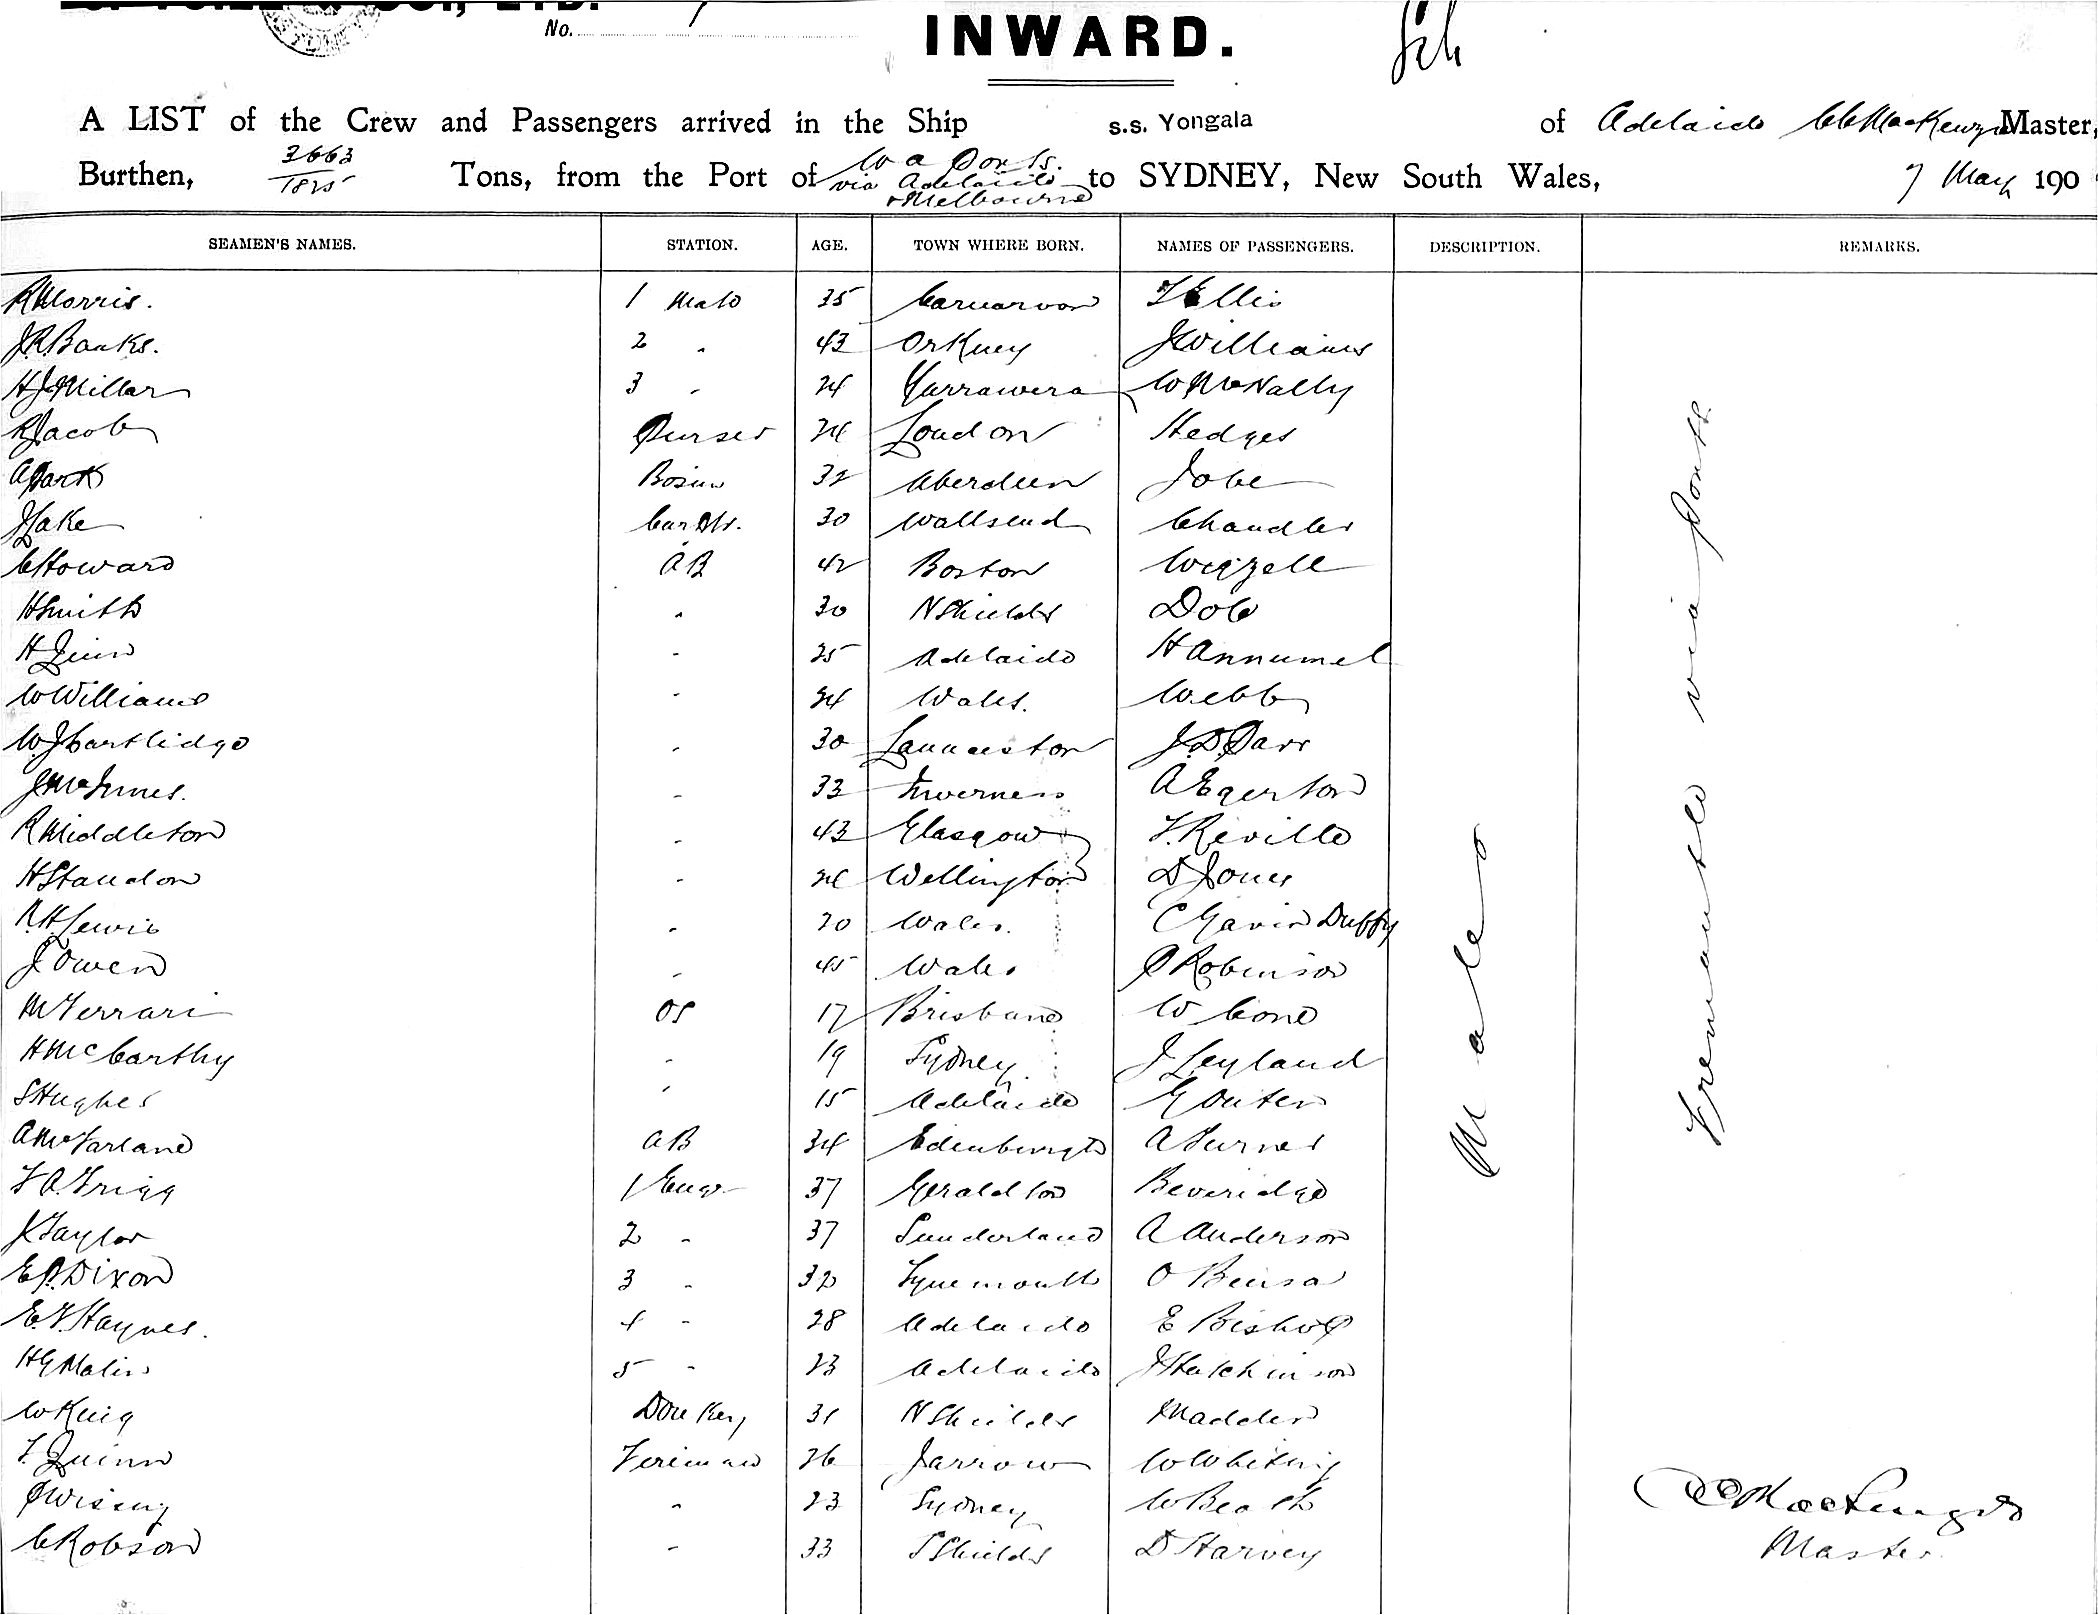 No.
INWARD.
A LIST of the Crew and Passengers arrived in the Ship s.s. Yongala of Adelaide Master,
Burthen, 3663 / 1825 Tons, from the Port of W a Ports. via Adelaide + Melbourne to SYDNEY, New South Wales, 7 May 190
SEAMEN'S NAMES. STATION. AGE. TOWN WHERE BORN. NAMES OF PASSENGERS. DESCRIPTION. REMARKS.
R Morris. 1 Mate 35 Carnarvon T Ellis
J R Banks. 2 " 43 Orkney J Williams
H J Millar 3 " 24 Yarrawera W McNally
R Jacob Purser 24 London Hedges
A Park Bosun 32 Aberdeen Jobe
J Lake 30 Wallsend Chandler
C Howard AB 42 Boston Wigzell
H Smith " 30 N Shields Dob
H Quin " 25 Adelaide H Annumel
W Williams " 24 Wales. Webb
W J Cartlidge " 30 Launceston J. D. Parr
J McInnes. " 33 Inverness A Egerton
R Middleton " 43 Glasgow F. Reville
H Standon " 24 Wellington D Jones
R. H. Lewis " 20 Wales. C Gavin Duffy
J Owen " 45 Wales P Robinson
M Ferrari OS 17 Brisbane W Cone
H McCarthy " 19 Sydney J Leyland
S Hughes " 15 Adelaide G Outen
A McFarlane AB 34 Edenburgh A Turner
F A. Trigg 1 Engr 37 Geraldton Beveridge
J Taylor 2 " 37 Sunderland A Anderson
E P. Dixon 3 " 32 Tynemouth O
E. F. Haynes. 4 " 28 Adelaide E Bishop
H G Malin 5 " 23 Adelaide J Hutchinson
W King Donkey 31 N Shields Madden
T. Quinn Fireman 26 Jarrow W Whiting
P " 23 Sydney W Beath
C Robson " 33 S Shields D Harvey
Males
Fremantle via Ports
Master